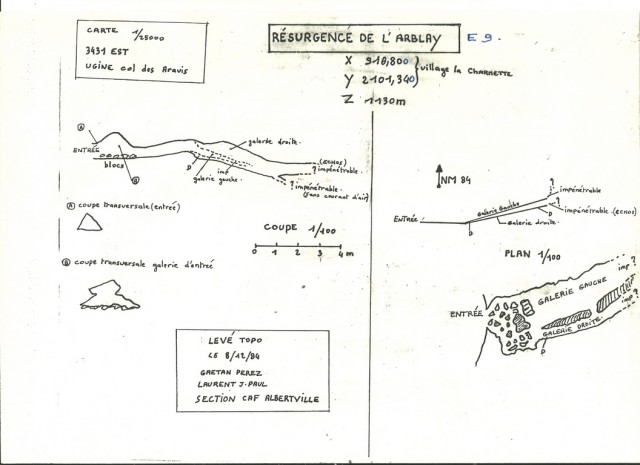 CARTE 1/25000
3431 EST
UGINE col des Aravis
RÉSURGENCE DE L'ARBLAY E9.
X 918,800
Y 2101,340
village la CHARNETTE
Z 1130m
A
ENTRÉE
blocs
B
galerie droite.
D
imp
galerie gauche.
(ECHOS)
? impénétrable.
?
impénétrable.
(sans courant d'air)
A coupe transversale (entrée)
COUPE 1/100
0 1 2 3 4m
B coupe transversale galerie d'entrée
LEVÉ TOPO
LE 8/12/84
GAETAN PEREZ
LAURENT J.PAUL
SECTION CAF ALBERTVILLE
NM 84
ENTRÉE
Galerie Gauche
D
galerie droite.
D
?
impénétrable
?
impénétrable. (ECHOS)
PLAN 1/100
ENTRÉE
GALERIE GAUCHE
GALERIE DROITE.
D
imp ?
imp ?